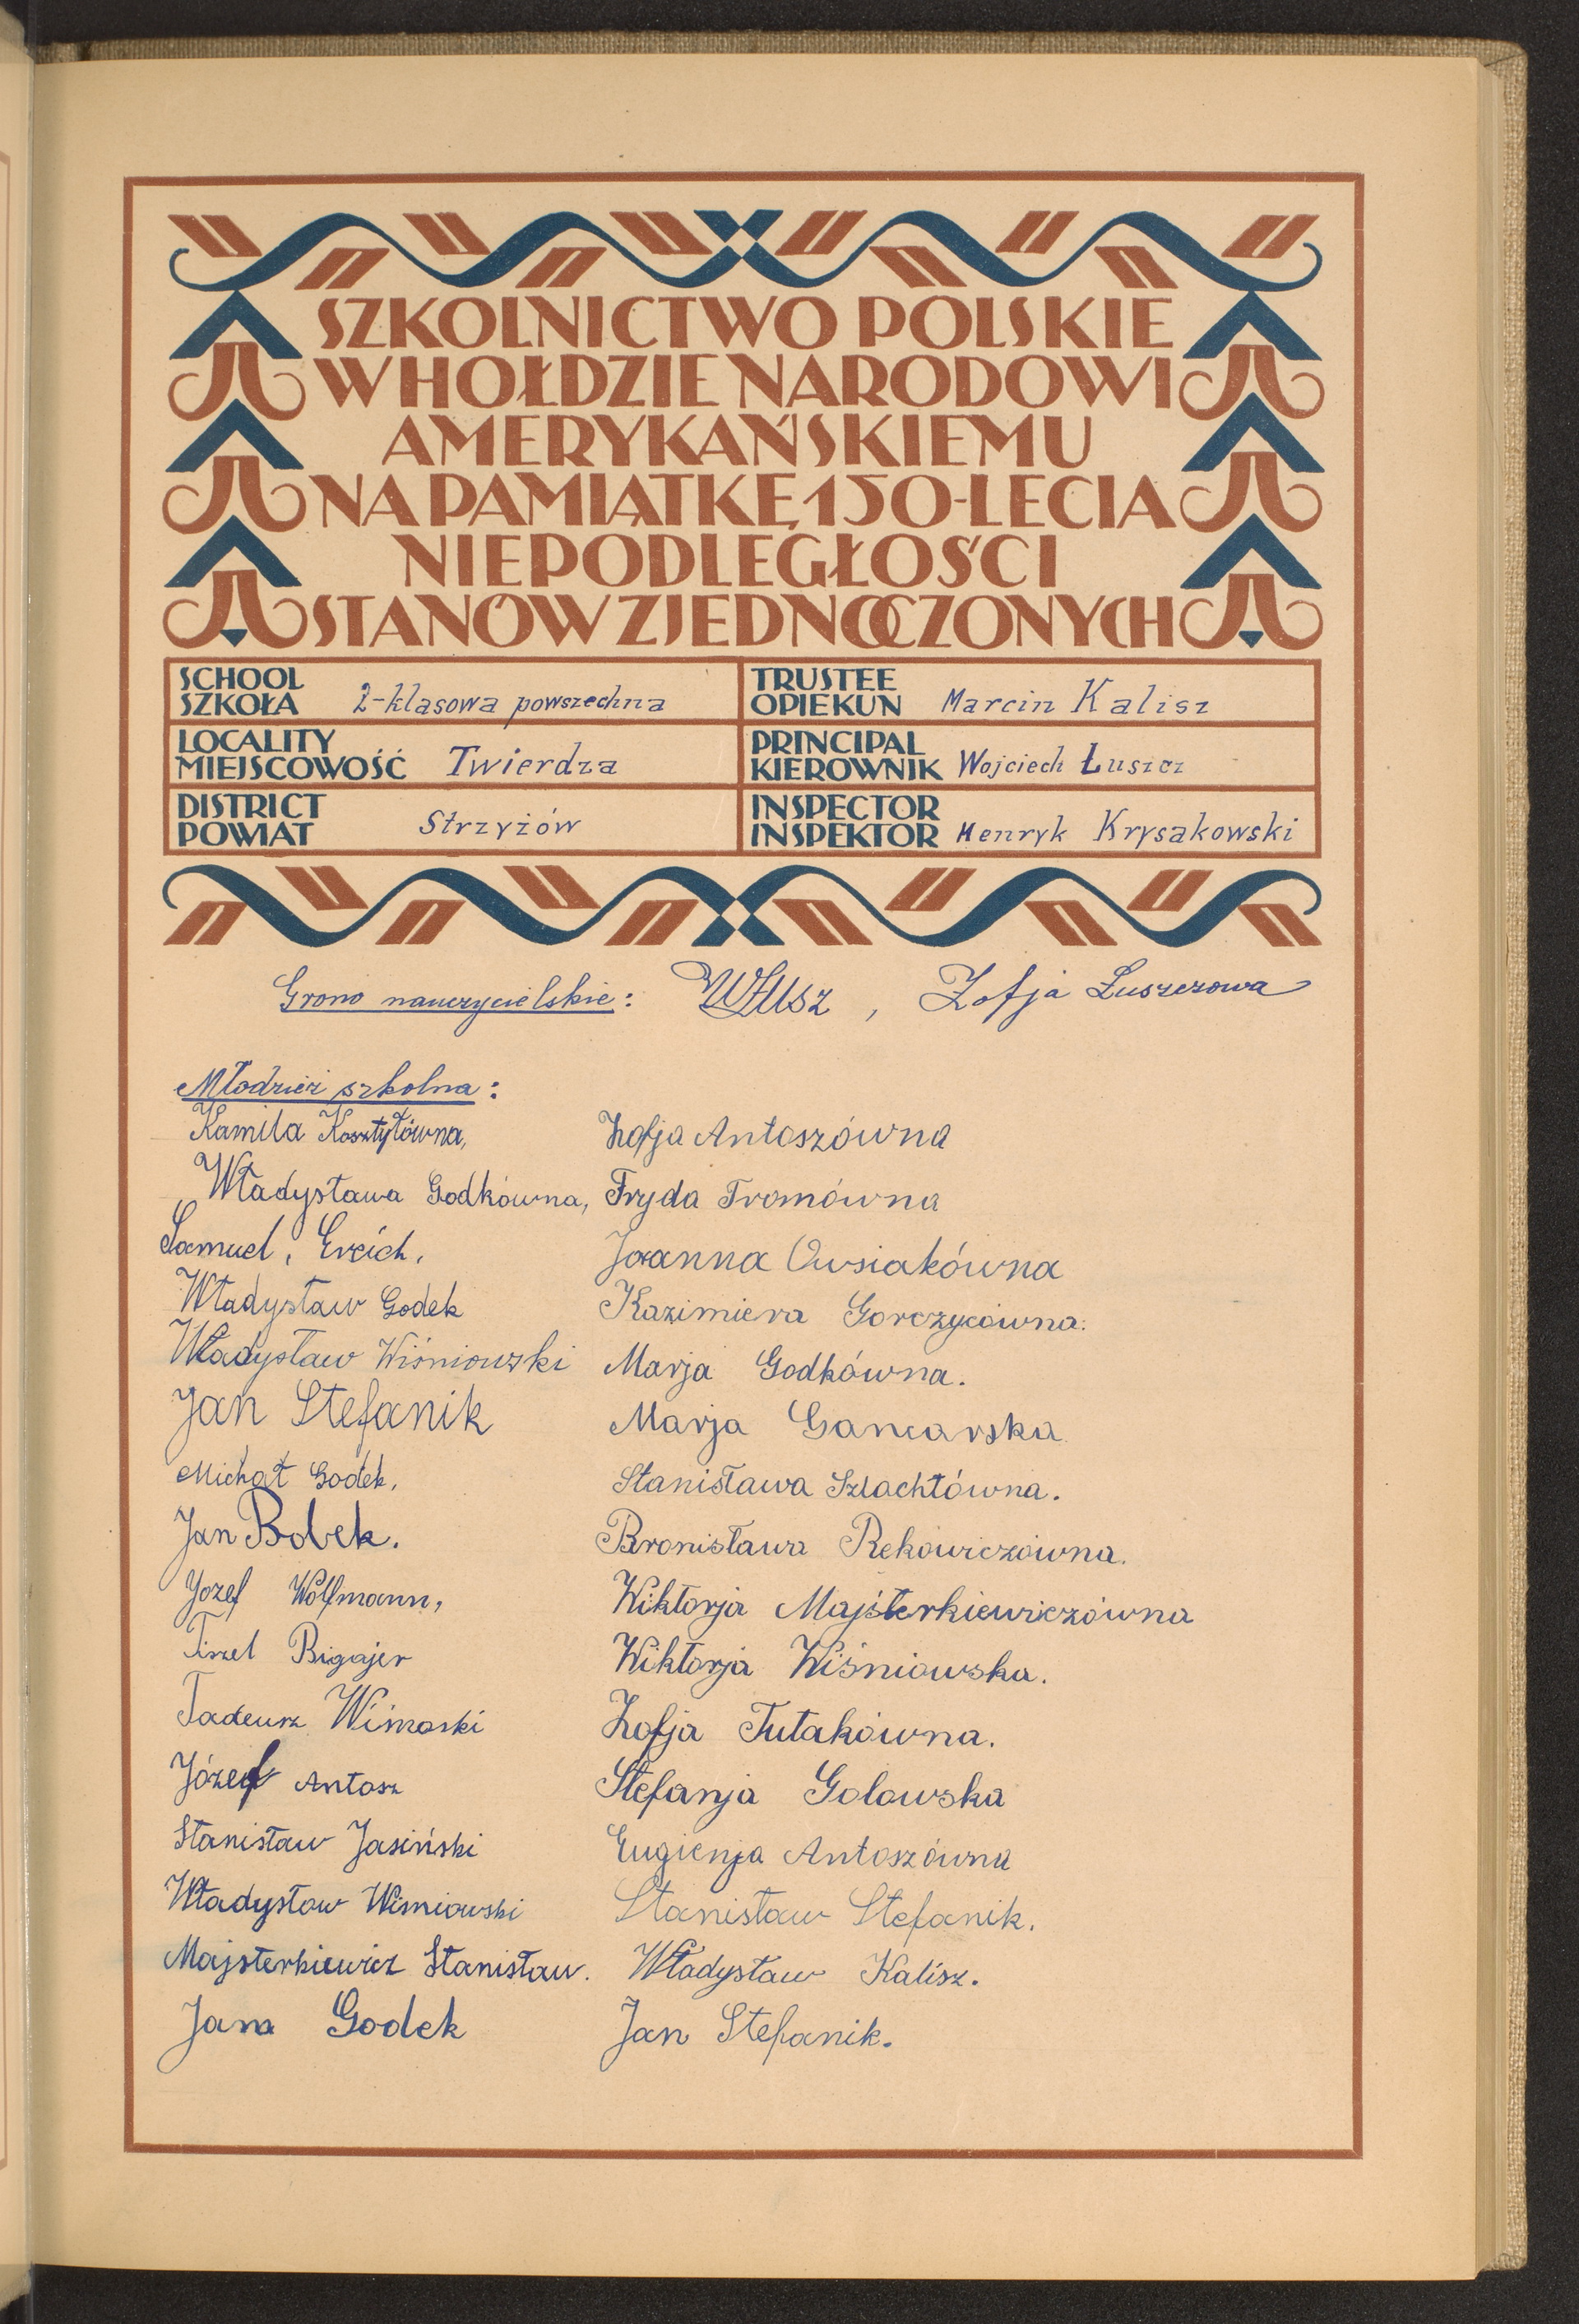 SZKOLNICTWO POLSKIE
W HOŁDZIE NARODOWI
AMERYKAŃSKIEMU
NA PAMIĄTKĘ 150-LECIA
NIEPODLEGŁOŚCI
STANÓW ZJEDNOCZONYCH
SCHOOL
SZKOŁA 2-klasowa powszechna
TRUSTEE
OPIEKUN Marcin Kalisz
LOCALITY
MIEJSCOWOŚĆ Twierdza
PRINCIPAL
KIEROWNIK Wojciech Łuszcz
DISTRICT
POWIAT Strzyżów
INSPECTOR
INSPEKTOR Henryk Krysakowski
Grono nauczycielskie: WŁusz, Zofja Łuszczowa
Młodzież szkolna:
Kamila Kosztyłówna,
Władysława Godkówna,
Samuel,
Władysław Godek
Władysław Wiśniowski
Jan Stefanik
Michał Godek,
Jan Bobek.
Jozef Wolfmann,
Bigajer
Tadeusz
Józef Antosz
Stanisław Jasiński
Władysław Wiśniowski
Majsterkiewicz Stanisław.
Jana Godek
Zofja Antoszówna
Fryda Tromówna
Joanna Owsiakówna
Kazimiera Gorczycówna.
Marja Godkówna.
Marja Gancarska
Stanisława Szlachtówna.
Bronisława Rekowiczówna.
Wiktorja Majsterkiewiczówna
Wiktorja Wiśniowska.
Zofja Tutakówna.
Stefanja Golowska
Eugienja Antoszówna
Stanisław Stefanik.
Władysław Kalisz.
Jan Stefanik.